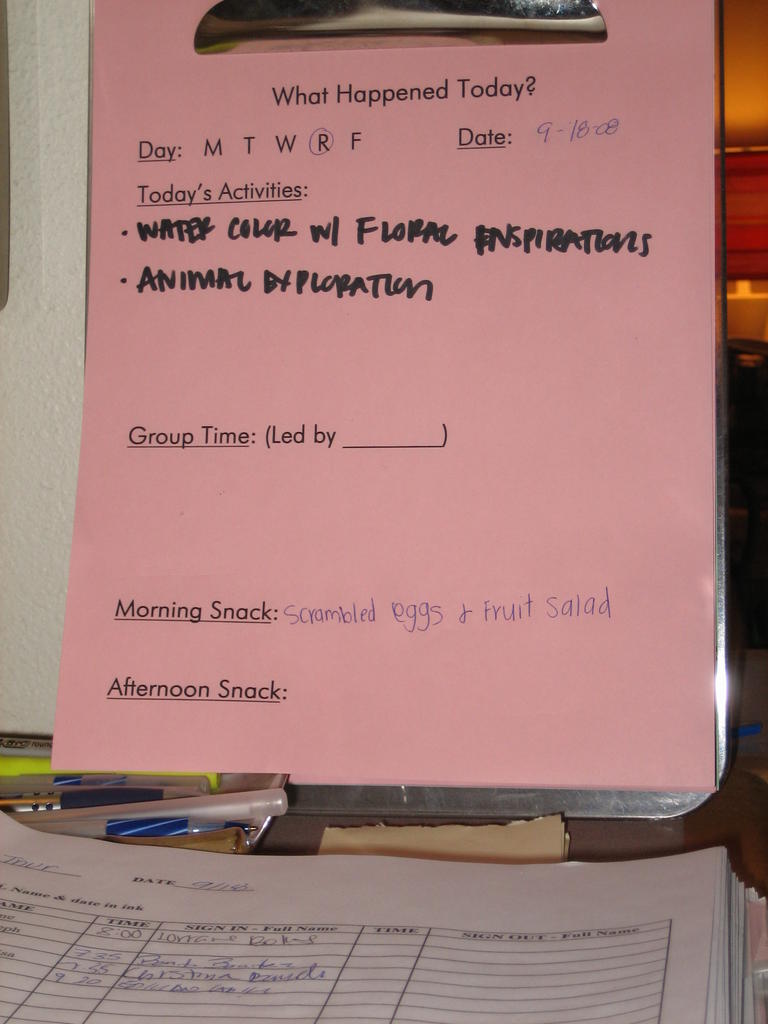 What Happened Today?
Day: M T W R F Date: 9-18-08
Today's Activities:
• WATER COLOR W/ FLORAL ENSPIRATIONS
• ANIMAL EXPLORATION
Group Time: (Led by ________)
Morning Snack: Scrambled eggs & Fruit Salad
Afternoon Snack:
DATE 9/18
Name & date in ink
TIME SIGN IN - Full Name TIME SIGN OUT - Full Name
8:00 Lorraine
7:35
7:55 Christina
9:20